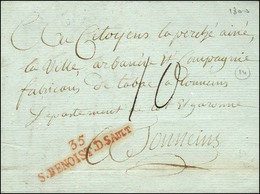 Aux Citoyens la perche ainé,
la Ville, arbanère et Compagnie
fabricans de tabac a Tonneins
Departement de lot et garonne
10
35
S.BENOIST.D.SAULT
A Tonneins